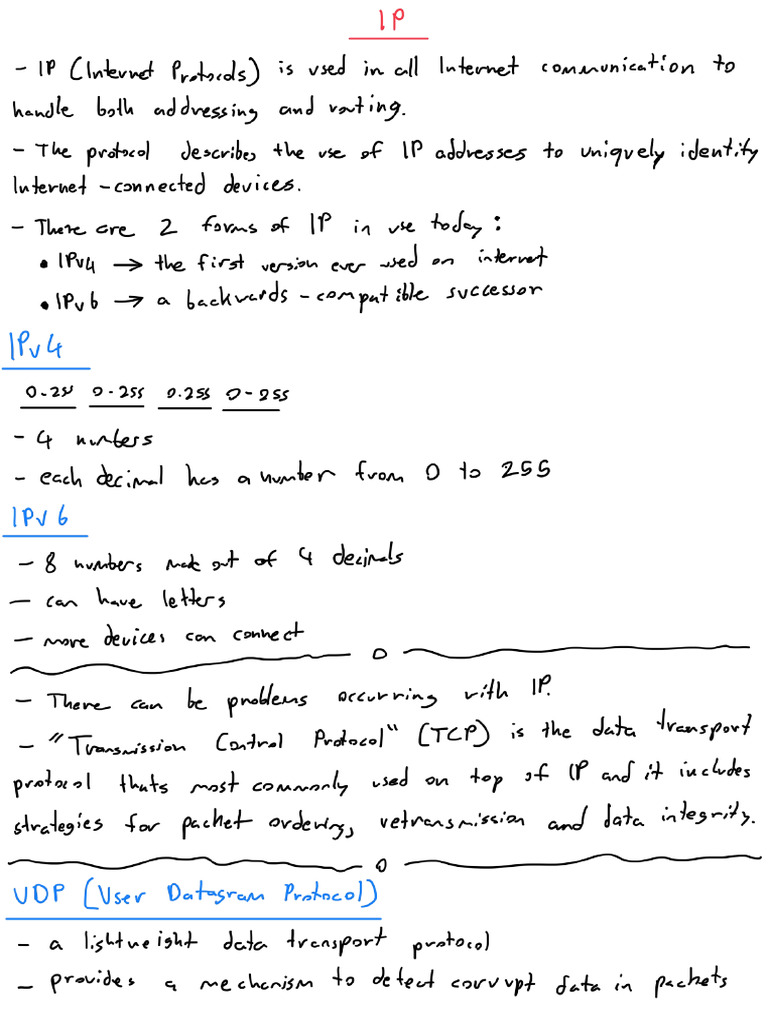 IP
- IP (Internet Protocols) is used in all Internet communication to
handle both addressing and routing.
- The protocol describes the use of IP addresses to uniquely identity
Internet-connected devices.
- There are 2 forms of IP in use today:
• IPv4 → the first version ever used on internet
• IPv6 → a backwards-compatible successor
IPv4
0-255 0-255 0.255 0-255
- 4 numbers
- each decimal has a number from 0 to 255
IPv6
- 8 numbers made out of 4 decimals
- can have letters
- more devices can connect
- There can be problems occurring with IP.
- "Transmission Control Protocol" (TCP) is the data transport
protocol thats most commonly used on top of IP and it includes
strategies for packet ordering, retransmission and data integrity.
UDP (User Datagram Protocol)
- a lightweight data transport protocol
- provides a mechanism to detect corrupt data in packets